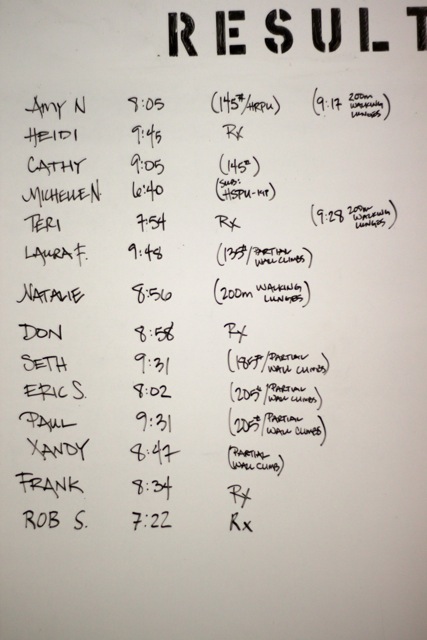 RESULT
AMY N 8:05 (145#/HRPU) (9:17 200m WALKING LUNGES)
HEIDI 9:45 Rx
CATHY 9:05 (145#)
MICHELLE N. 6:40 (SUB: HSPU-KIP)
TERI 7:54 Rx (9:28 200m WALKING LUNGES)
LAURA F. 9:48 (135#/PARTIAL WALL CLIMBS)
NATALIE 8:56 (200m WALKING LUNGES)
DON 8:58 Rx
SETH 9:31 (185#/PARTIAL WALL CLIMBS)
ERIC S. 8:02 (205#/PARTIAL WALL CLIMBS)
PAUL 9:31 (205#/PARTIAL WALL CLIMBS)
XANDY 8:47 (PARTIAL WALL CLIMB)
FRANK 8:34 Rx
ROB S. 7:22 Rx